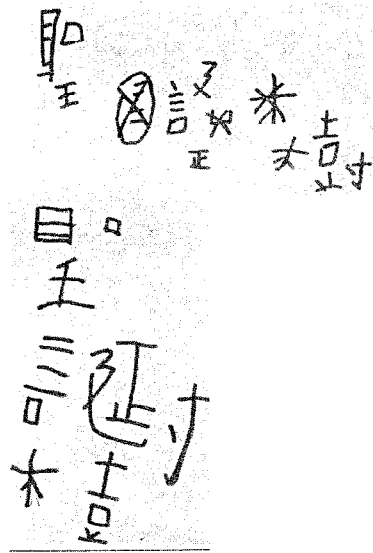 聖誕樹
聖
誕
樹